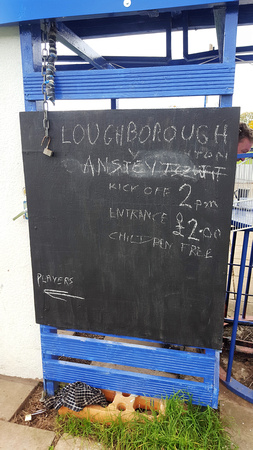 LOUGHBOROUGH
V
TDN
ANSTEY
KICK OFF 2pm
ENTRANCE £2.00
CHILDREN FREE
PLAYERS